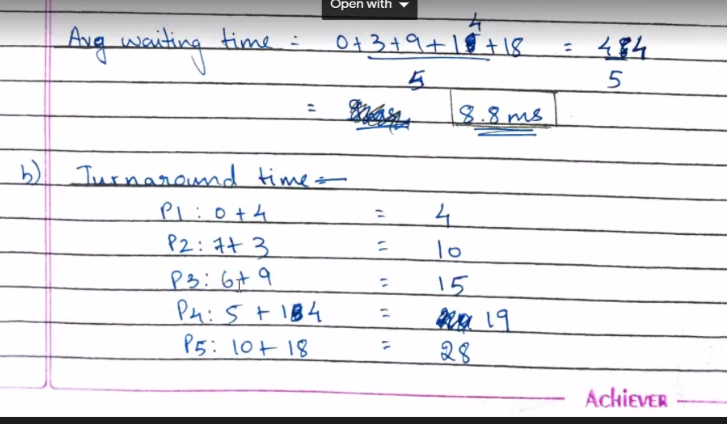 Open with
Avg waiting time = 0+3+9+14+18 = 44
5 5
= 8.8 ms
b) Turnaround time =
P1 : 0+4 = 4
P2 : 7+3 = 10
P3 : 6+9 = 15
P4 : 5+14 = 19
P5 : 10+18 = 28
ACHIEVER